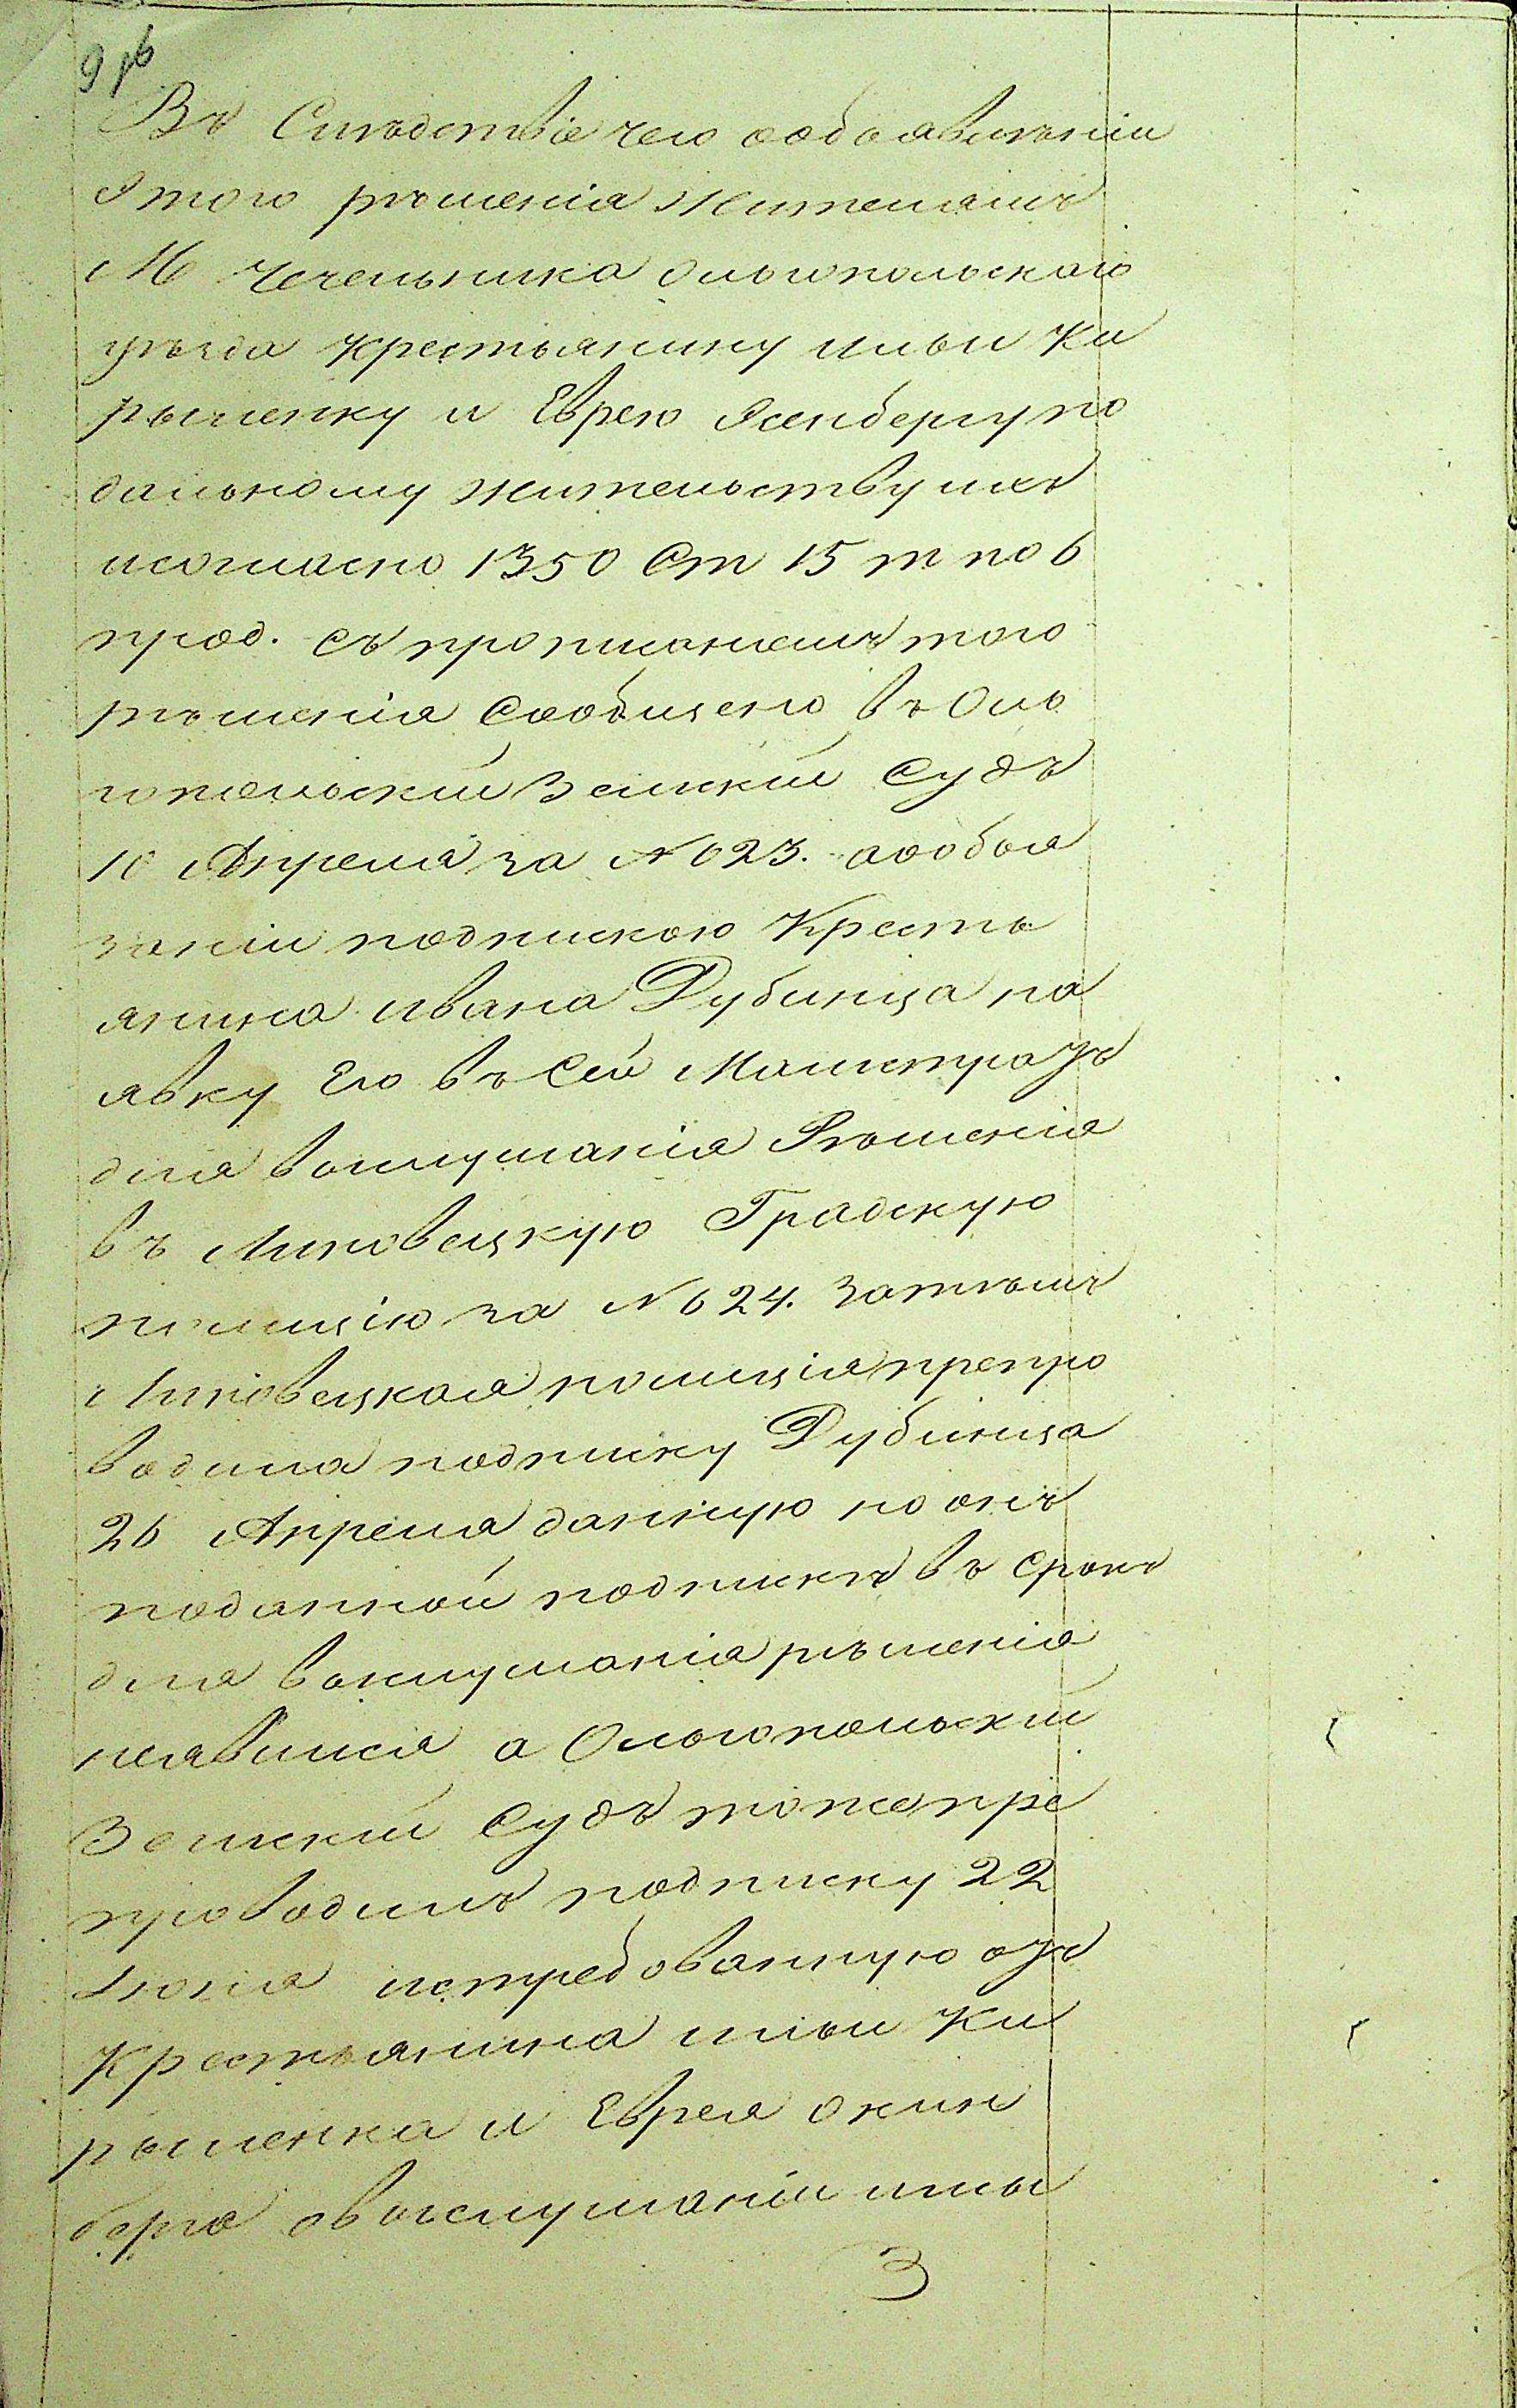 Въ Слѣдствіе чего о обоявленіи
Этого рѣшенія Жителямъ
М Чечельника Ольгопольскаго
уѣзда Крестьянину ильи Ки
рыленку и Еврею Ясенбергу по
дальному жительству ихъ
исогласно 1350 Ст 15 т по 6
прод. съ прописаніемъ того
рѣшенія Сообщено въ Оль
гопольскій Земскій Судъ
10 Апреля за № 623. а о обяз
заніи подпискою Кресть
янина ивана Дубинца на
явку Его въ Сей Магистратъ
для выслушанія Рѣшенія
въ Липовецкую Градскую
полицію за № 624. Затѣмъ
Липовецкая полиція препро
водила подписку Дубинца
26 Апреля данную но онъ
поданной подпискѣ въ срокъ
для выслушанія рѣшенія
неявился а Ольгопольскій
Земскій Судъ тоже пре
проводилъ подписку 22
Іюня истребованную отъ
Крестьянина ильи Ки
рыленка и Еврея Окин
берга овыслушаніи имы
3